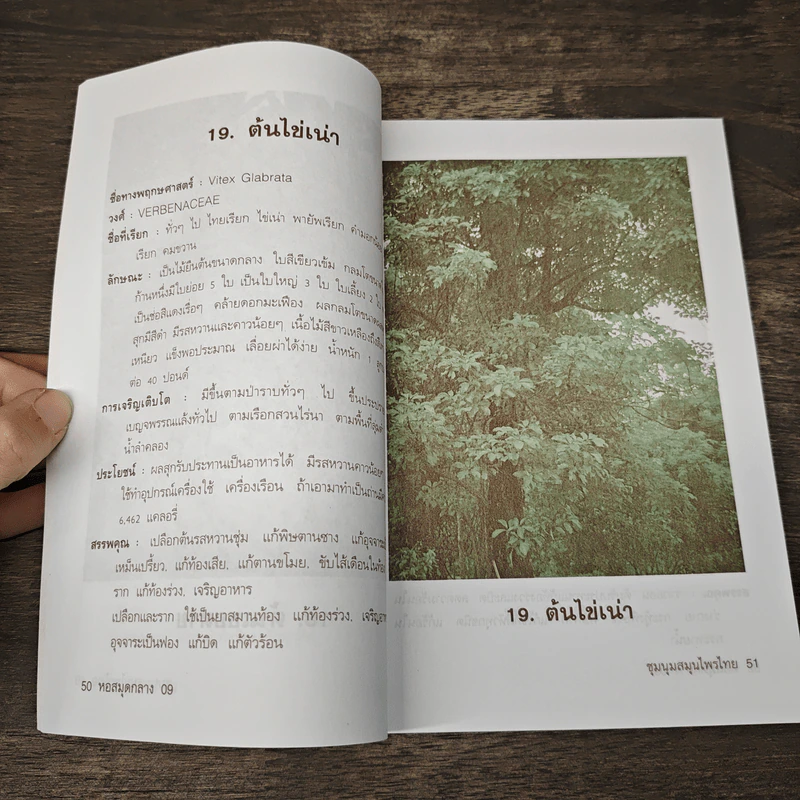 19. ต้นไข่เน่า
ชื่อทางพฤกษศาสตร์ : Vitex Glabrata
วงศ์ : VERBENACEAE
ชื่อที่เรียก : ทั่วๆ ไป ไทยเรียก ไข่เน่า พายัพเรียก
เรียก คมขวาน
ลักษณะ : เป็นไม้ยืนต้นขนาดกลาง ใบสีเขียวเข้ม กลมโตขนาด
ก้านหนึ่งมีใบย่อย 5 ใบ เป็นใบใหญ่ 3 ใบ ใบเลี้ยง 2
เป็นช่อสีแดงเรื่อๆ คล้ายดอกมะเฟือง ผลกลมโตขนาด
สุกมีสีดำ มีรสหวานและคาวน้อยๆ เนื้อไม้สีขาวเหลืองถึง
เหนียว แข็งพอประมาณ เลื่อยผ่าได้ง่าย น้ำหนัก 1
ต่อ 40 ปอนด์
การเจริญเติบโต : มีขึ้นตามป่าราบทั่วๆ ไป ขึ้น
เบญจพรรณแล้งทั่วไป ตามเรือกสวนไร่นา ตามพื้นที่
น้ำลำคลอง
ประโยชน์ : ผลสุกรับประทานเป็นอาหารได้ มีรสหวานคาวน้อยๆ
ใช้ทำอุปกรณ์เครื่องใช้ เครื่องเรือน ถ้าเอามาทำเป็นถ่าน
6,462 แคลอรี่
สรรพคุณ : เปลือกต้นรสหวานชุ่ม แก้พิษตานซาง แก้อุจจาระ
เหม็นเปรี้ยว, แก้ท้องเสีย, แก้ตานขโมย, ขับไส้เดือนใน
ราก แก้ท้องร่วง, เจริญอาหาร
เปลือกและราก ใช้เป็นยาสมานท้อง แก้ท้องร่วง, เจริญ
อุจจาระเป็นฟอง แก้บิด แก้ตัวร้อน
50 หอสมุดกลาง 09
19. ต้นไข่เน่า
ชุมนุมสมุนไพรไทย 51